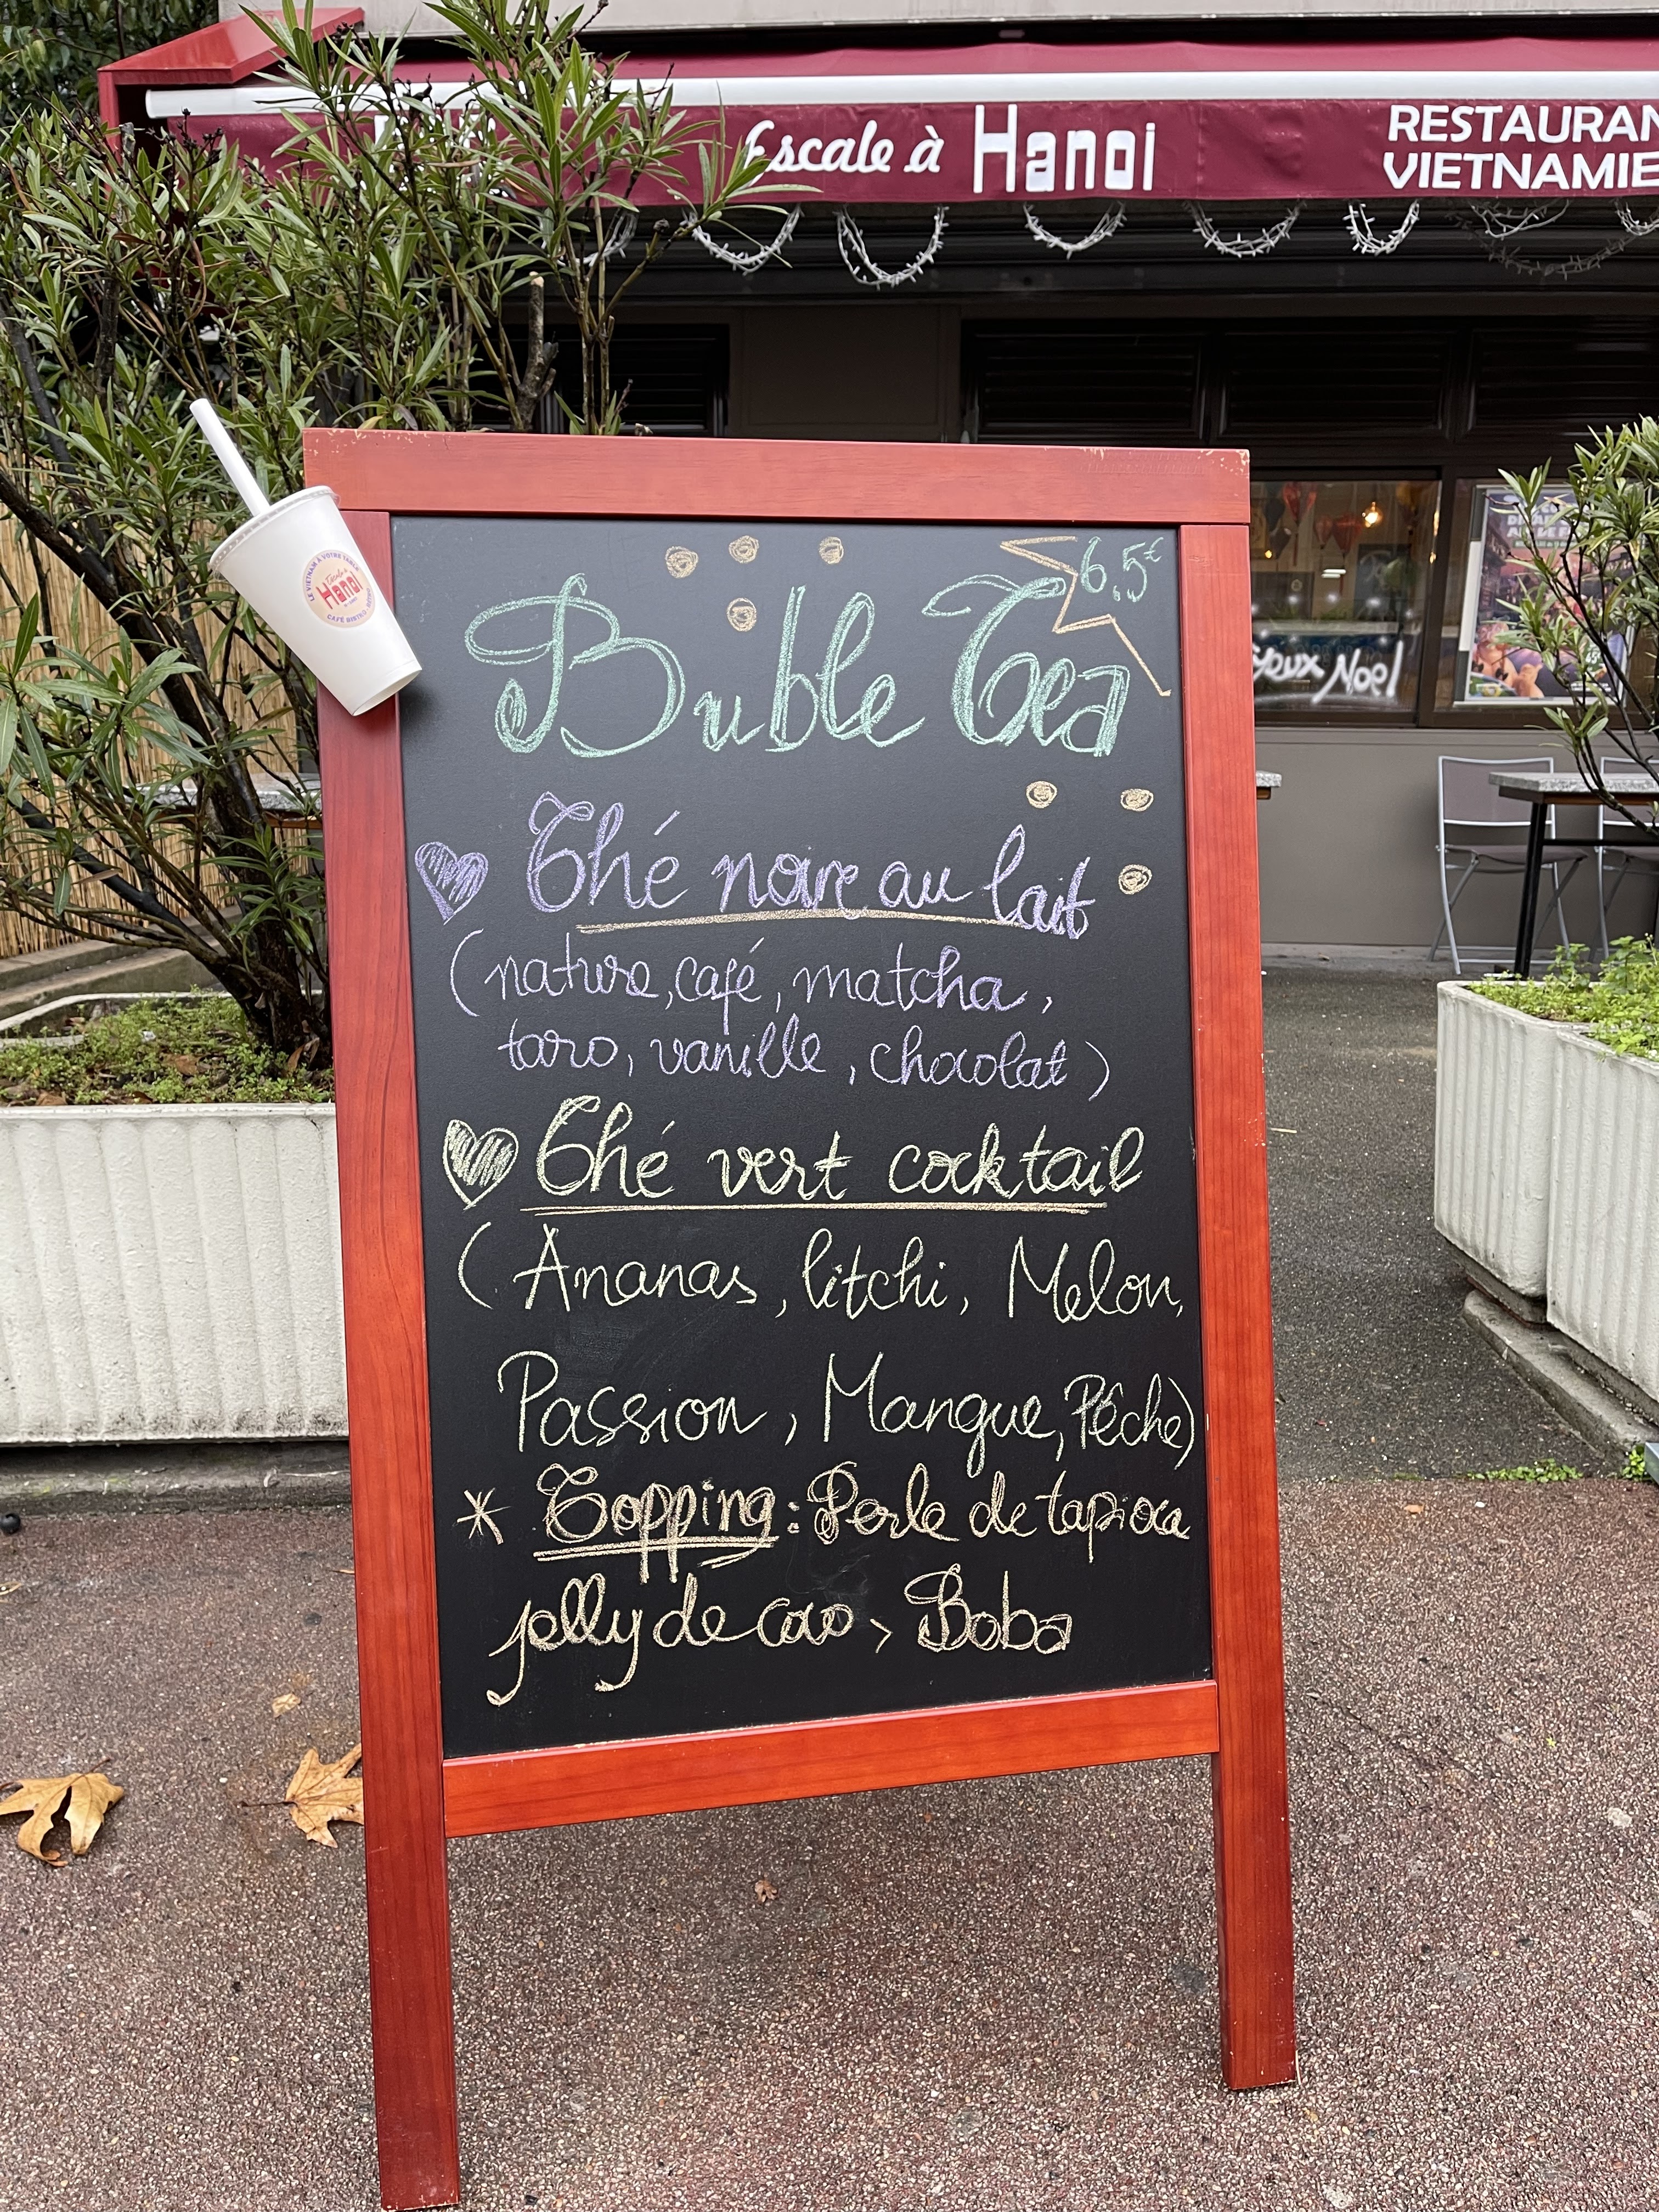 Escale à Hanoi
RESTAURAN
VIETNAMIE
LE VIETNAM À VOTRE TABLE
Escale à
Hanoi
CAFÉ BISTRO
6,5€
Buble Tea
Joyeux Noel
Thé noire au lait
(nature, café, matcha,
taro, vanille, chocolat)
Thé vert cocktail
(Ananas, litchi, Melon,
Passion, Mangue, Pêche)
* Topping : Perle de tapioca
jelly de coco, Boba